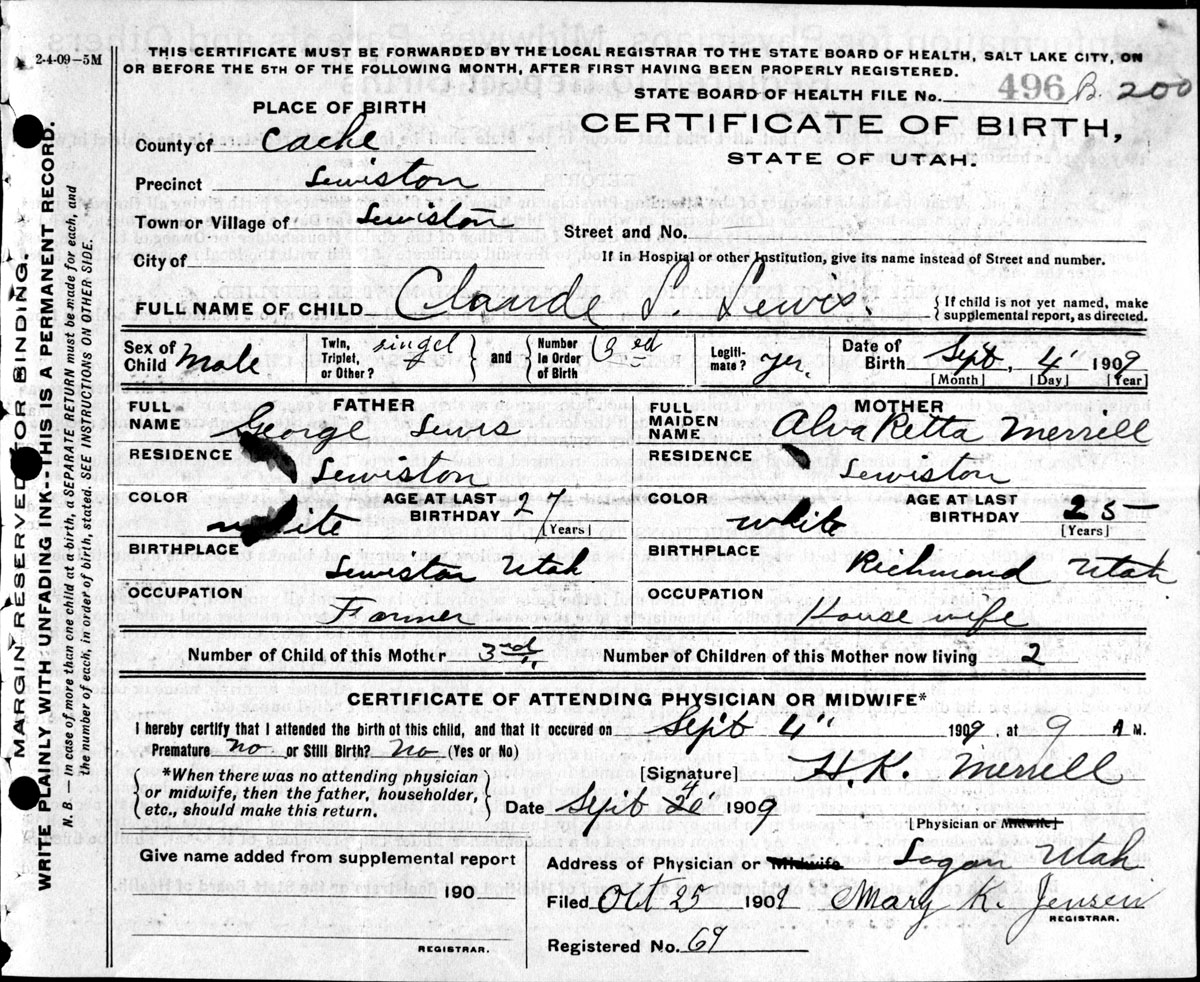 2-4-09-5M
THIS CERTIFICATE MUST BE FORWARDED BY THE LOCAL REGISTRAR TO THE STATE BOARD OF HEALTH, SALT LAKE CITY, ON
OR BEFORE THE 5TH OF THE FOLLOWING MONTH, AFTER FIRST HAVING BEEN PROPERLY REGISTERED.
STATE BOARD OF HEALTH FILE No. 496 B. 200
PLACE OF BIRTH
CERTIFICATE OF BIRTH,
STATE OF UTAH.
County of Cache
Precinct Lewiston
Town or Village of Lewiston
Street and No.
City of
If in Hospital or other Institution, give its name instead of Street and number.
FULL NAME OF CHILD Claude L. Lewis. {If child is not yet named, make supplemental report, as directed.
Sex of Child Male Twin, Triplet, or Other? singel and Number in Order of Birth Legiti-mate? yes. Date of Birth Sept, 4" 1909
[Month] [Day] [Year]
FATHER
FULL NAME George Lewis
RESIDENCE
Lewiston
COLOR white AGE AT LAST BIRTHDAY 27 [Years]
BIRTHPLACE
Lewiston Utah
OCCUPATION
Farmer
MOTHER
FULL MAIDEN NAME Alva Retta Merrell
RESIDENCE
Lewiston
COLOR white AGE AT LAST BIRTHDAY 25 [Years]
BIRTHPLACE
Richmond Utah
OCCUPATION
House wife
Number of Child of this Mother 3rd Number of Children of this Mother now living 2
CERTIFICATE OF ATTENDING PHYSICIAN OR MIDWIFE*
I hereby certify that I attended the birth of this child, and that it occured on Sept 4" 1909, at 9 A M.
Premature No or Still Birth? No (Yes or No)
*When there was no attending physician
or midwife, then the father, householder,
etc., should make this return.
[Signature] H. K. Merrell
Date Sept 4 20 1909
[Physician or Midwife]
Give name added from supplemental report
190
REGISTRAR.
Address of Physician or Midwife Logan Utah
Filed Oct 25 1909 Mary K. Jensen
REGISTRAR.
Registered No. 69
MARGIN RESERVED FOR BINDING
WRITE PLAINLY WITH UNFADING INK--THIS IS A PERMANENT RECORD.
N. B.—In case of more than one child at a birth, a SEPARATE RETURN must be made for each, and
the number of each, in order of birth, stated. SEE INSTRUCTIONS ON OTHER SIDE.